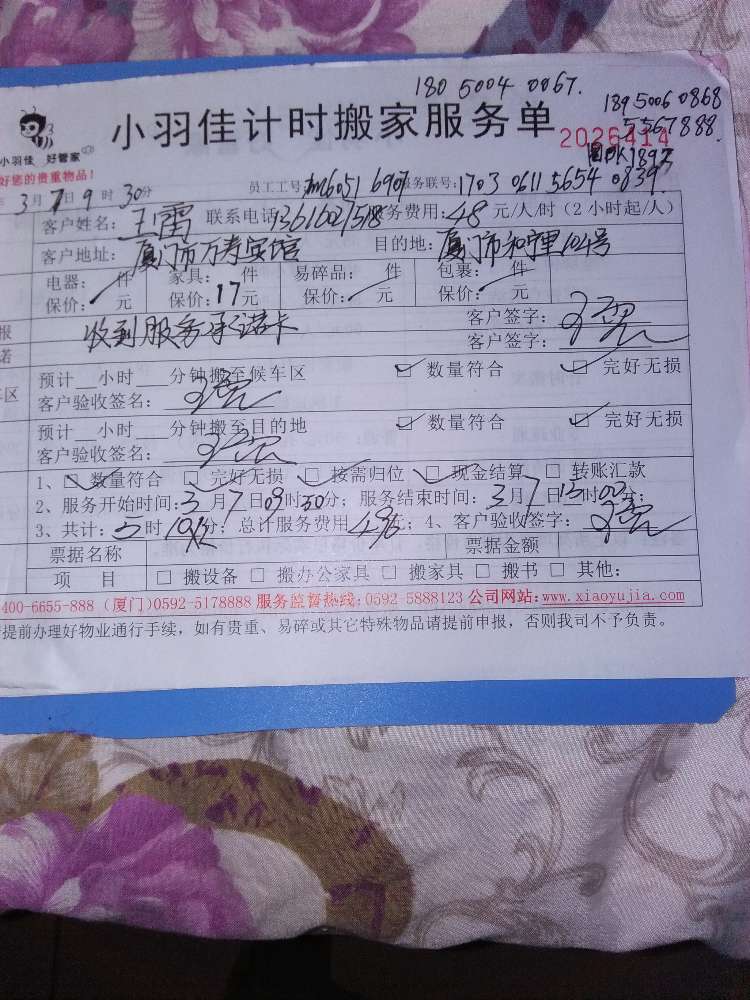 180 5004 0067.
189 5006 0868
5567888.
小羽佳计时搬家服务单
2026414
小羽佳 好管家
好您的贵重物品!
3月7 9时30分 员工工号: 服务联号:1703 0611 5654 0839
客户姓名: 王雷 联系电话 务费用:48元/人/时(2小时起/人)
客户地址: 厦门市万寿宾馆 目的地: 厦门市和宁里104号
电器: 件 家具: 件 易碎品: 件 包裹: 件
保价: 元 保价:17元 保价: 元 保价: 元
收到服务承诺卡 客户签字:
客户签字:
报
诺
预计__小时___分钟搬至候车区 ☑ 数量符合 ☑ 完好无损
车区 客户验收签名:
预计__小时___分钟搬至目的地 ☑ 数量符合 ☑ 完好无损
客户验收签名:
1、☑ 数量符合 ☑ 完好无损 ☑ 按需归位 ☑ 现金结算 □ 转账汇款
2、服务开始时间:3月7日09时30分;服务结束时间:3月7日13时00分;
3、共计: 时 分;总计服务费用 元;4、客户验收签字:
票据名称 票据金额
项 目 □ 搬设备 □ 搬办公家具 □ 搬家具 □ 搬书 □ 其他:
400-6655-888 (厦门)0592-5178888 服务监督热线:0592-5888123 公司网站:www.xiaoyujia.com
提前办理好物业通行手续,如有贵重、易碎或其它特殊物品请提前申报,否则我司不予负责。